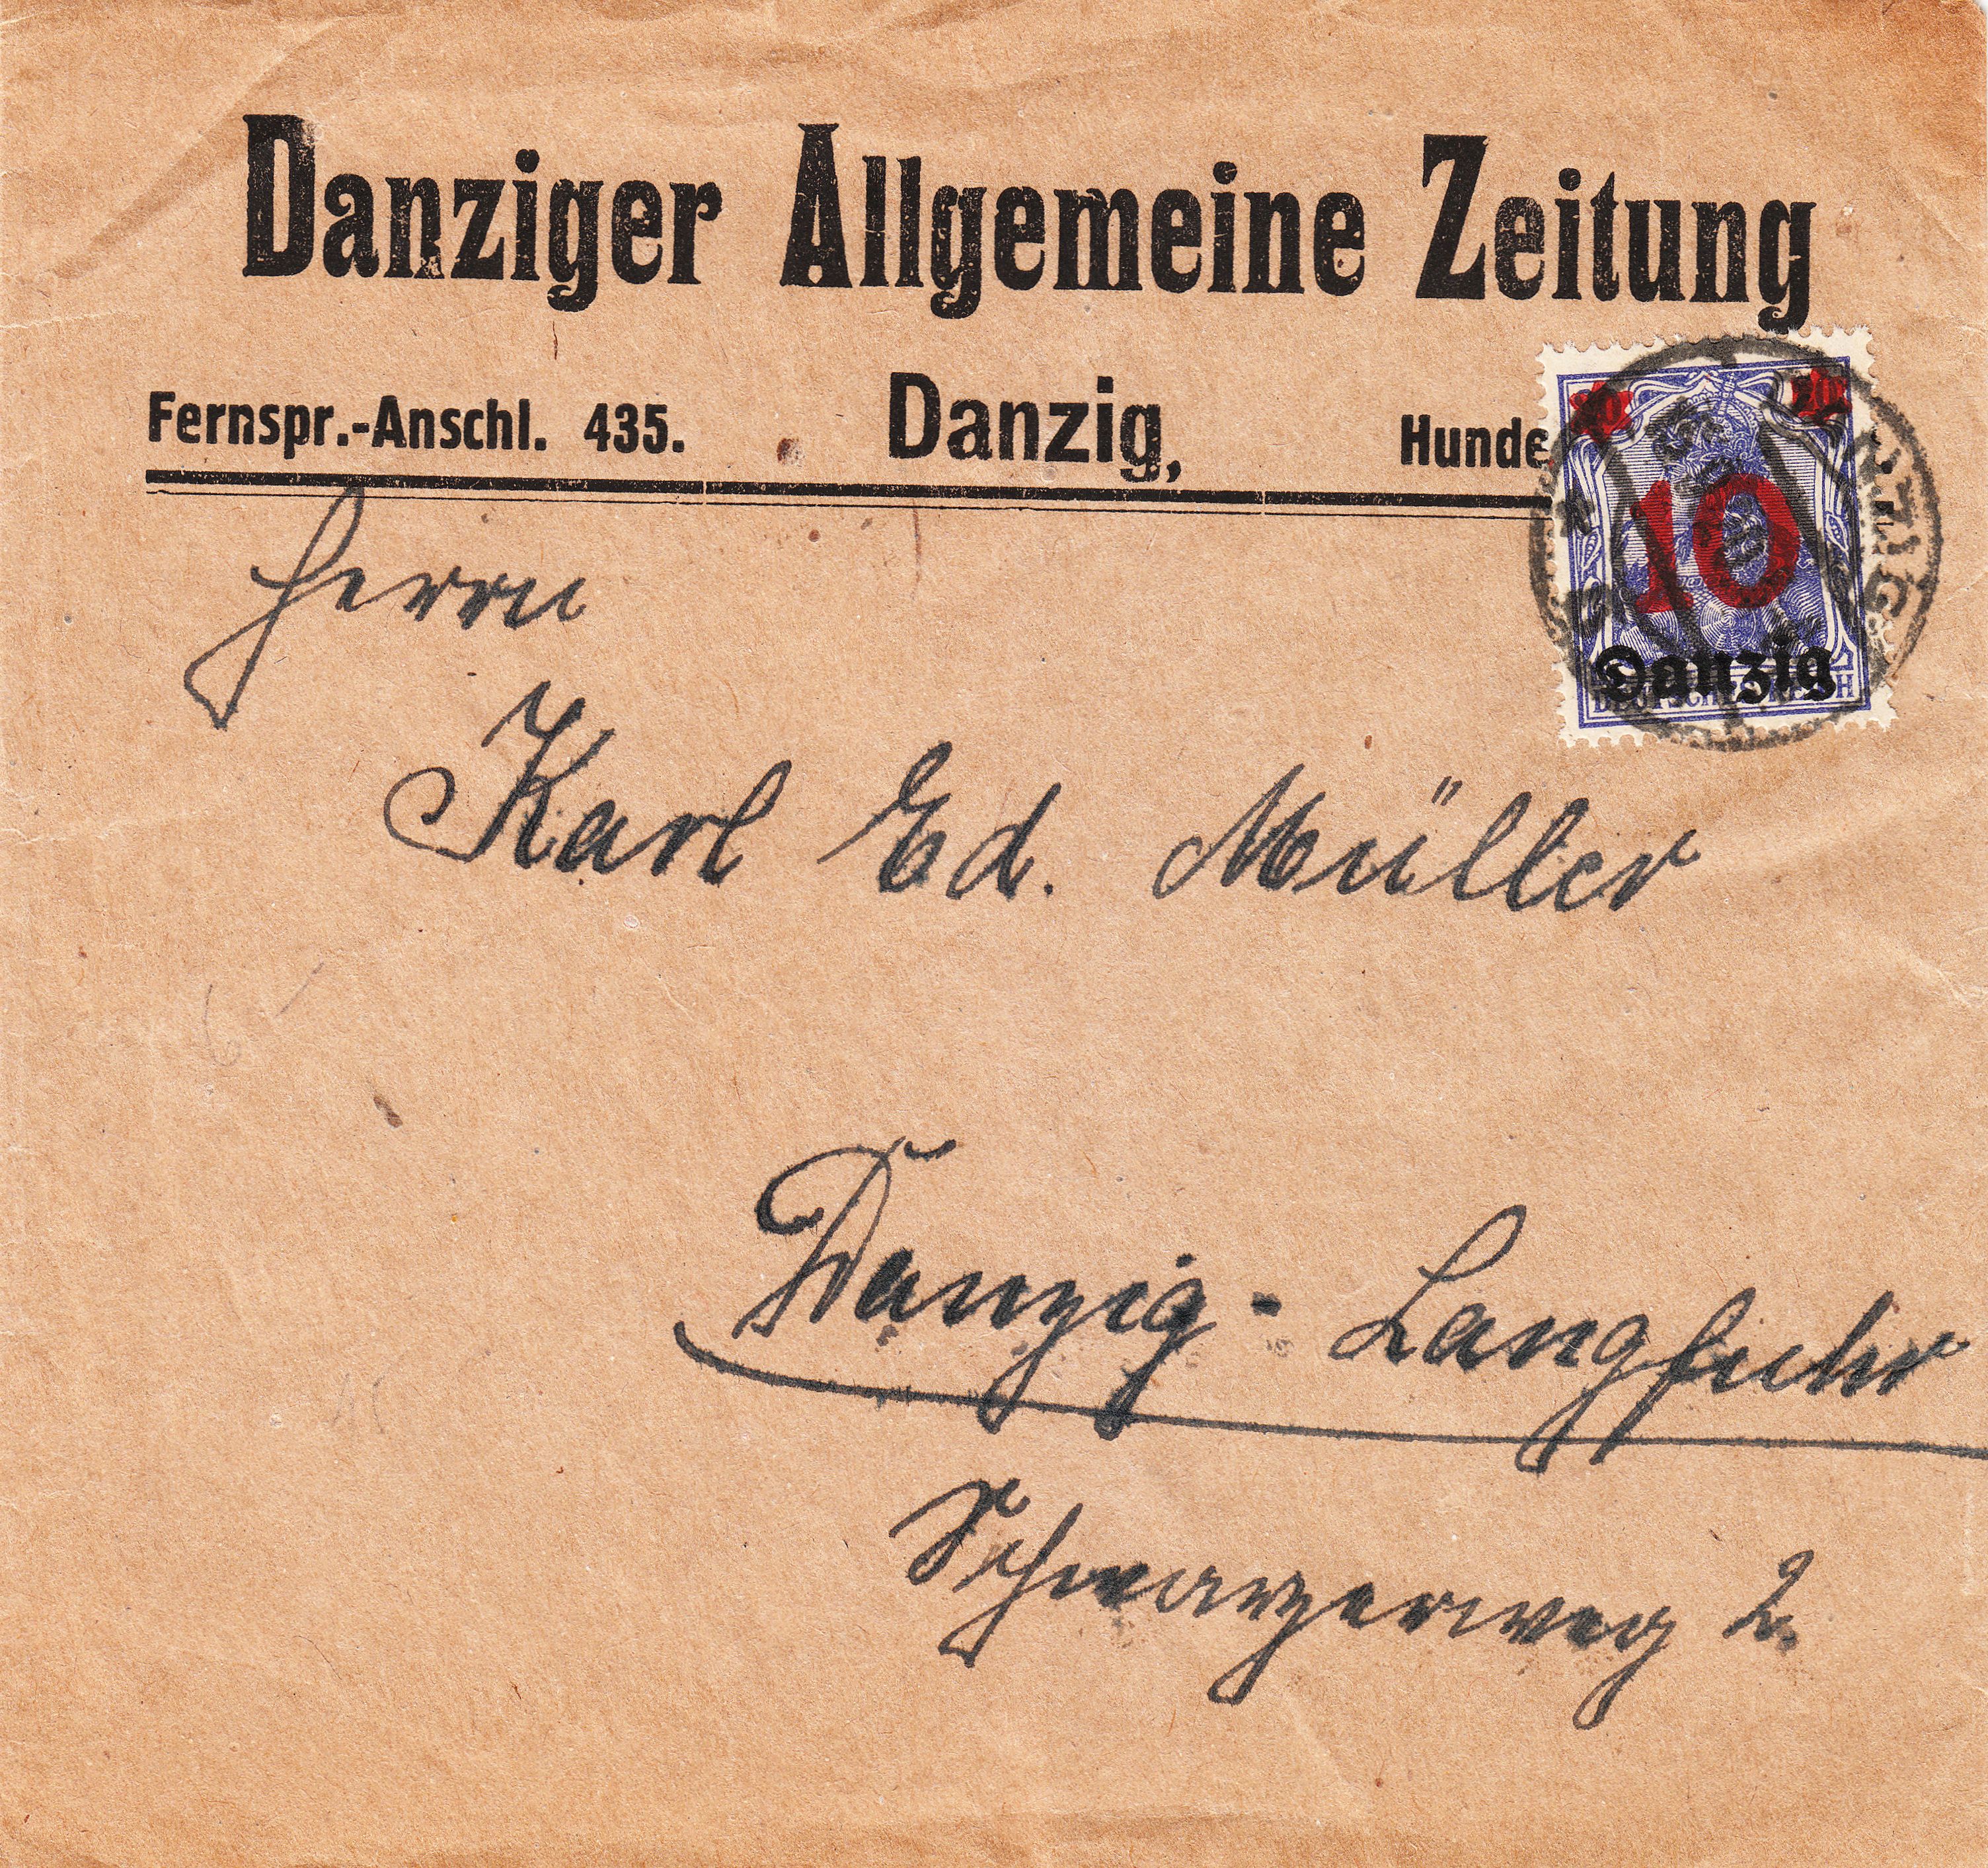 Danziger Allgemeine Zeitung
Fernspr.-Anschl. 435. Danzig, Hunde
10
Danzig
Herrn
Karl Ed. Müller
Danzig-Langfuhr
Schwarzerweg 2.